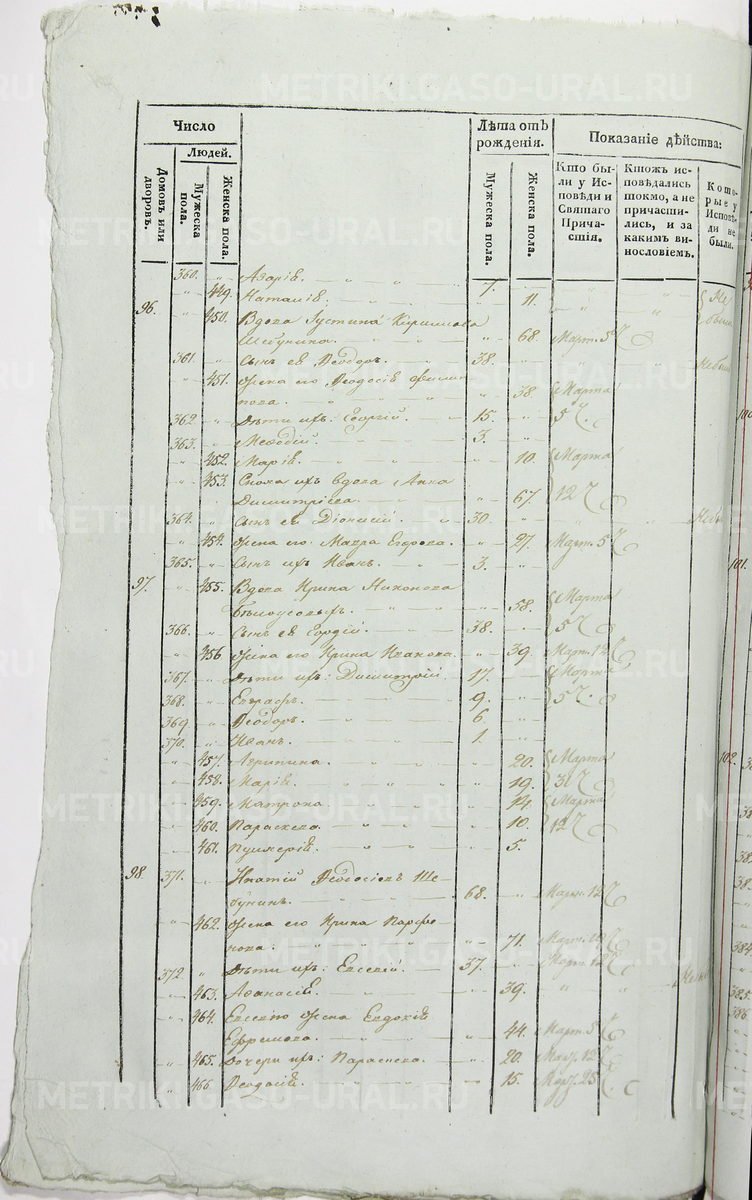 Число
Лѣта отъ рожденія.
Показаніе дѣйства:
Людей.
Домовъ или дворовъ.
Мужеска пола.
Женска пола.
Мужеска пола.
Женска пола.
Кто были у Исповѣди и Святаго Причастія.
Ктожъ исповѣдались токмо, а не причастились, и за какимъ винословіемъ.
Которые у Исповѣди не были.
360. Азарій. 7.
449. Наталія. 11. Не были
96. 450. Вдова Іустина Кирилова
Шебунина. 68. Март. 5
361. Сынъ ея Ѳеодоръ. 38. Не былъ
451. Жена его Ѳеодосія Филипова. 38. Марта
362. Дѣти ихъ: Георгій. 15. 5
363. Меѳодій. 3.
452. Марія. 10. Марта
453. Сноха ихъ вдова Анна
Димитріева. 67. 12
364. Сынъ ея Діонисій. 30. Не былъ
454. Жена его Мавра Егорова. 27. Март. 5
365. Сынъ ихъ Иванъ. 3.
97. 455. Вдова Ирина Никонова
Бѣлоусовыхъ. 58. Марта
366. Сынъ ея Гордій. 38. 5
456 Жена его Ирина Иванова. 39. Март. 12
367. Дѣти ихъ: Димитрій. 17. Март.
368. Евграфъ. 9. 5
369 Ѳеодоръ. 6.
370. Иванъ. 1.
457. Агрипина. 20. Марта
458. Марія. 19. 31
459. Матрона. 14. Марта
460. Параскева. 10. 12
461. Пулхерія. 5.
98. 371. Игнатій Ѳеодосіевъ Шебунинъ. 68. Март. 12
462. Жена его Ирина Парфенова. 71. Март. 12
372 Дѣти ихъ: Евсевій. 37. Март. 12
463. Аѳанасія. 39.
464. Евсевіо жена Евдокія
Ефремова. 44. Март. 5
465. Дочери ихъ: Параскева. 20. Март. 12
466. Ѳеодосія. 15. Март. 25
101.
102.
384.
385.
386.
METRIKI.GASO-URAL.RU